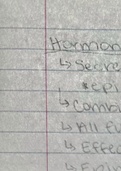 Hormon
↳ Secre
* epi
↳ Combi
↳ All f
↳ Effec